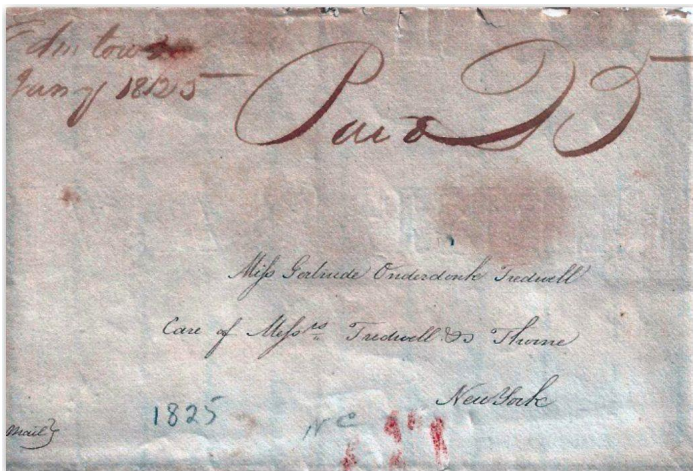 Edentown
Jany 1825
Paid 25
Miss Gertrude Onderdonk Tredwell
Care of Mess rs Tredwell & Thorne
New York
Mail
1825
NC